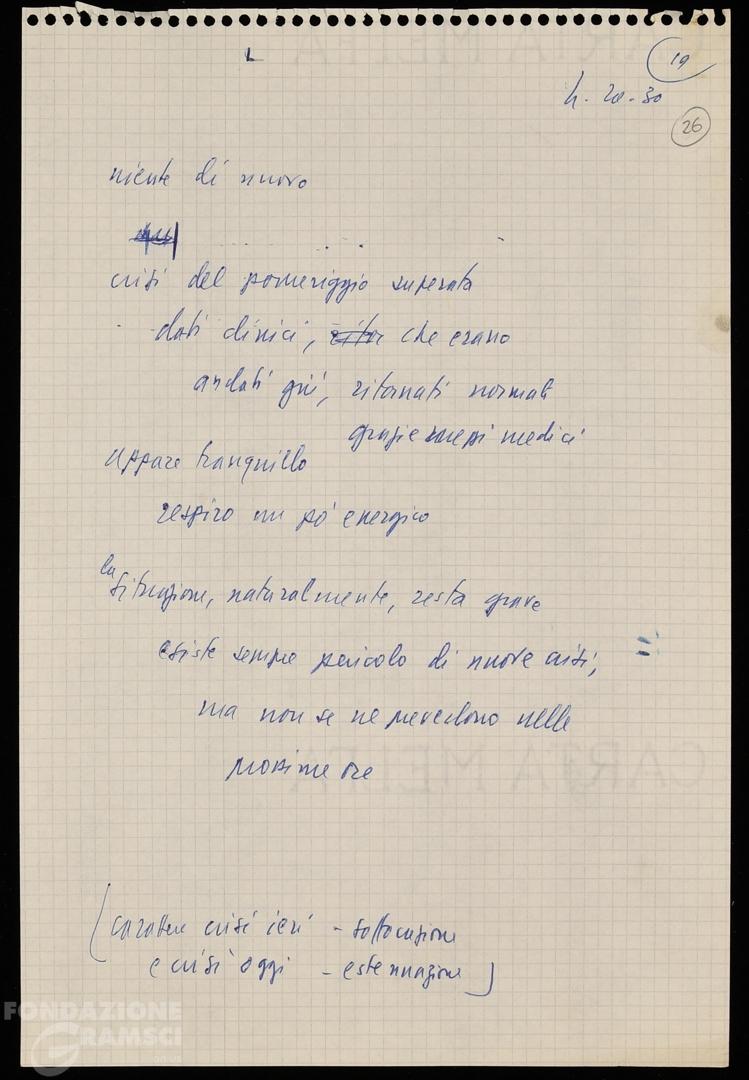 19
h. 20.30
26
niente di nuovo
crisi del pomeriggio superata
dati clinici, che erano
andati giù, ritornati normali
grazie mezzi medici
appare tranquillo
respiro un pò energico
la situazione, naturalmente, resta grave
esiste sempre pericolo di nuove crisi,
ma non se ne prevedono nelle
prossime ore
(carattere crisi ieri - soffocazione
e crisi oggi - estenuazione)
FONDAZIONE
GRAMSCI